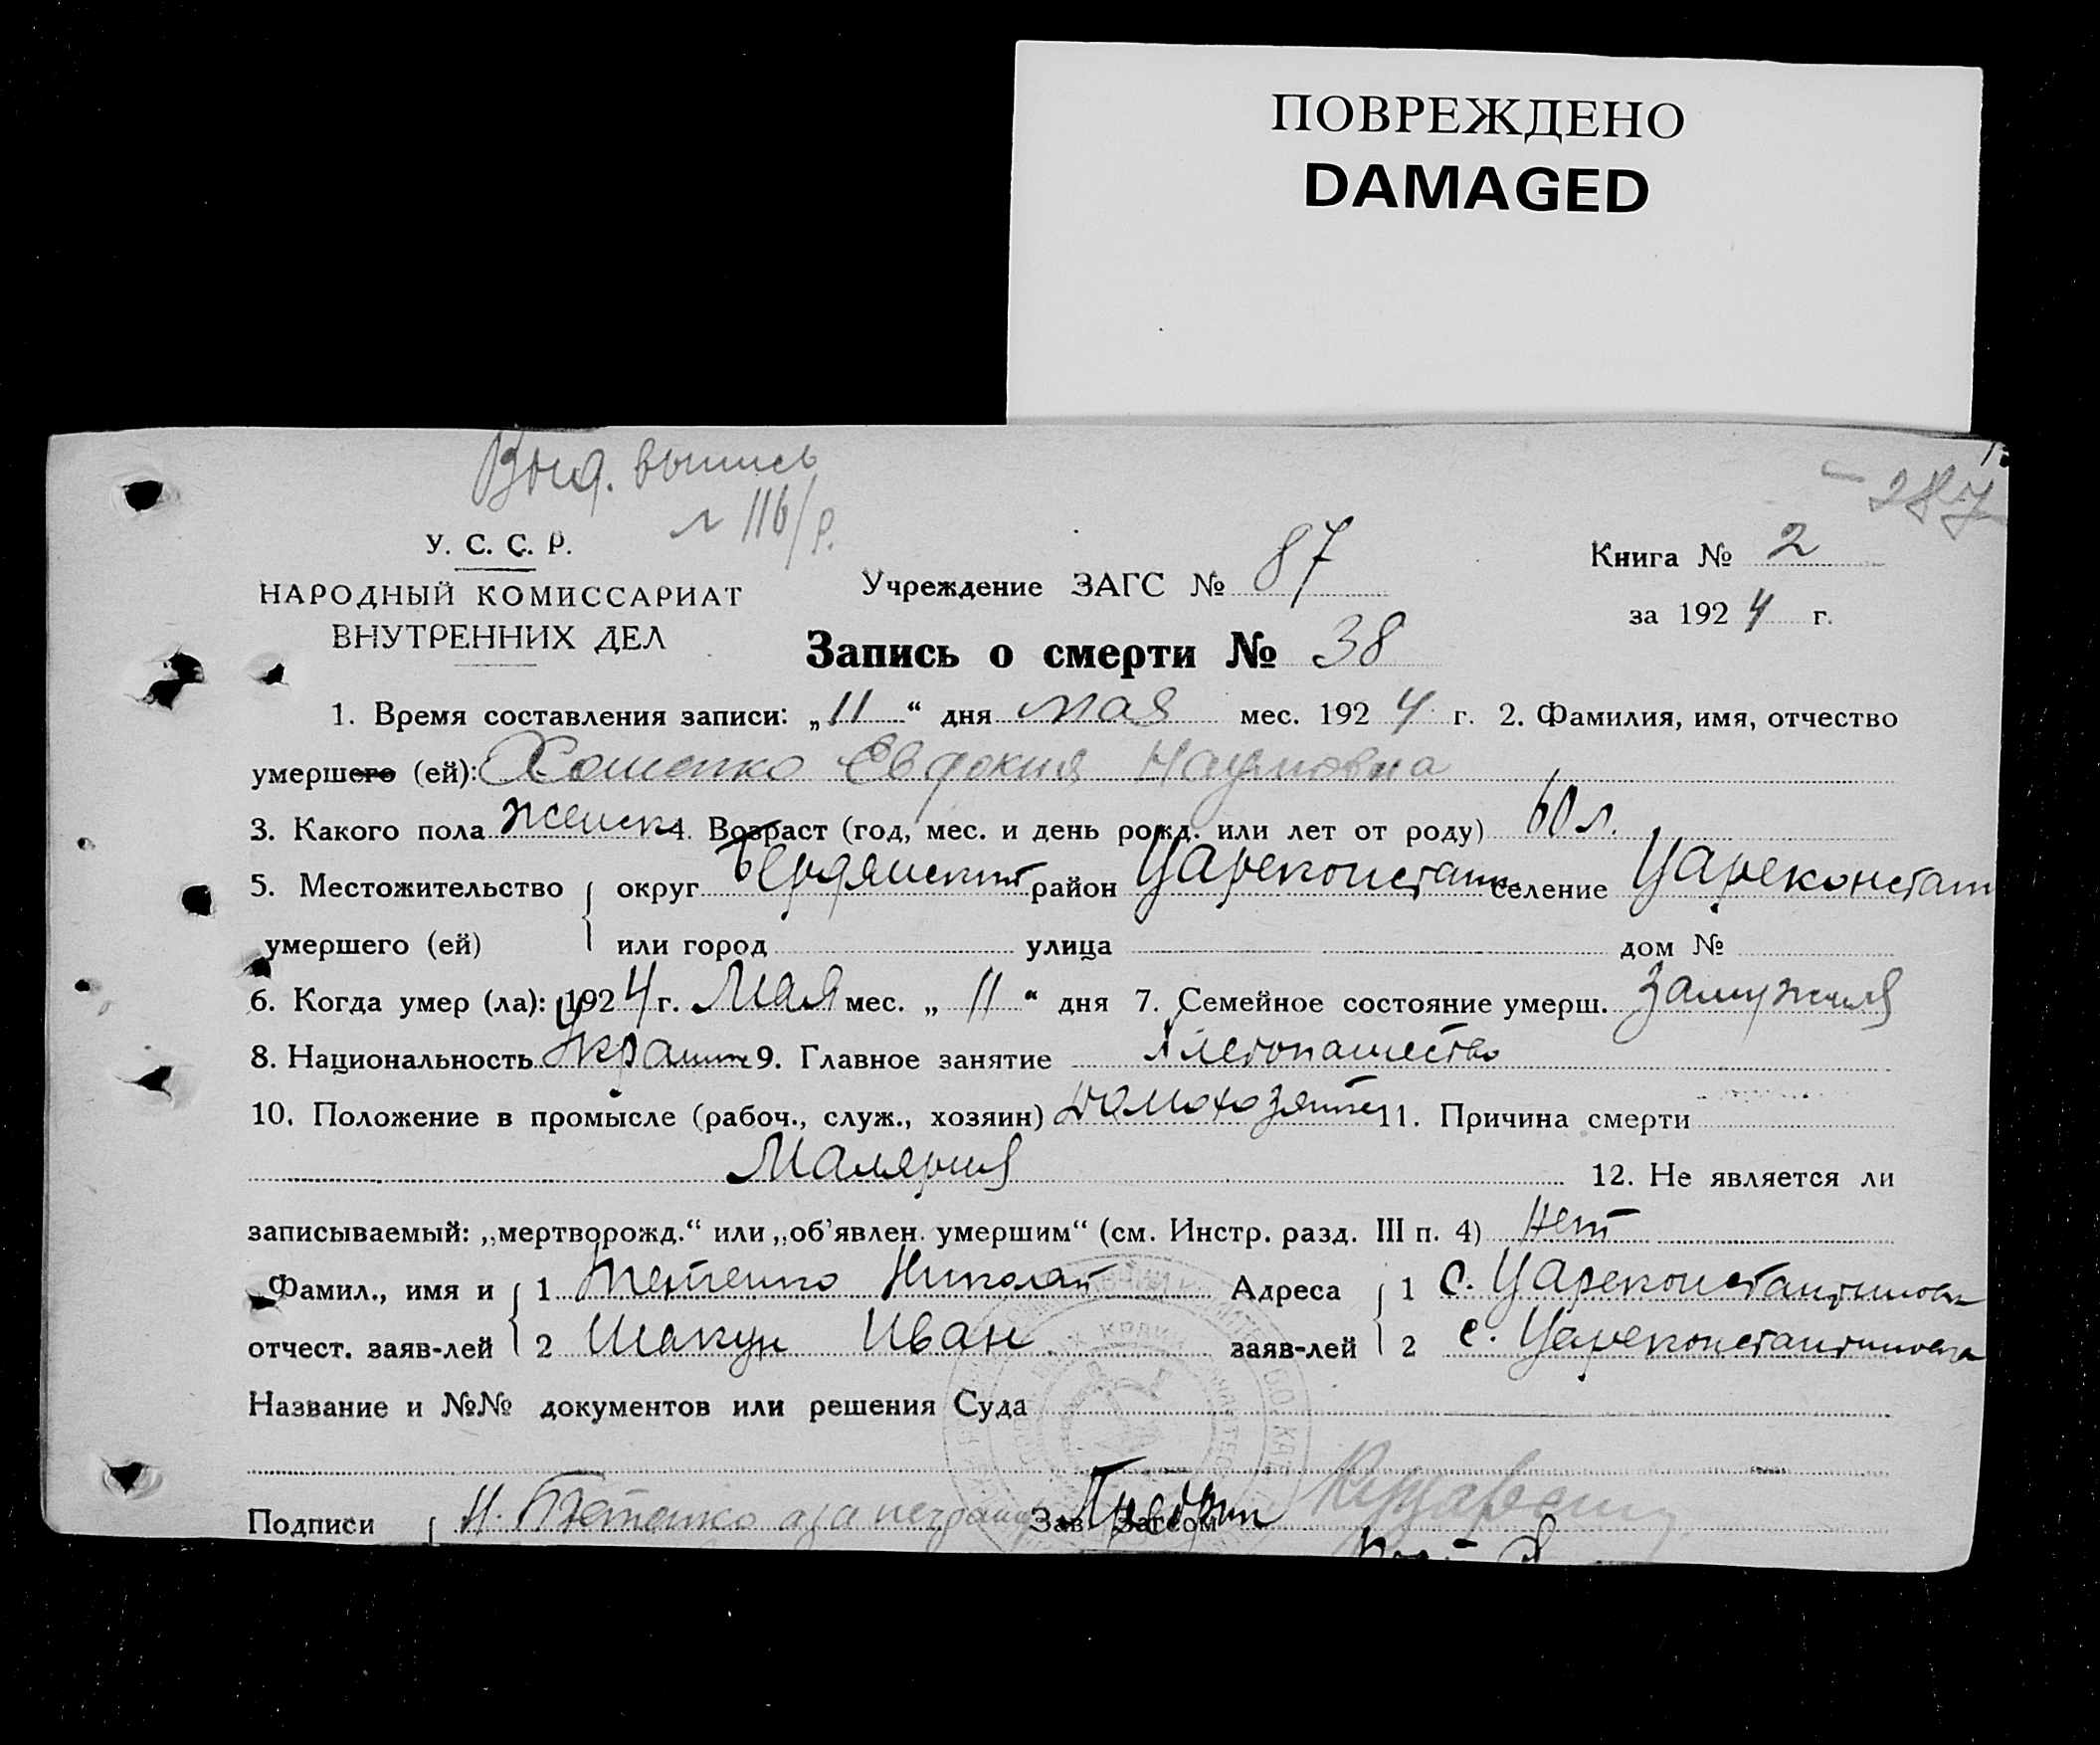 ПОВРЕЖДЕНО
DAMAGED
Выд. выпись
№ 116/р.
287
У. С. С. Р.
НАРОДНЫЙ КОМИССАРИАТ
ВНУТРЕННИХ ДЕЛ
Учреждение ЗАГС № 87
Книга № 2
за 1924 г.
Запись о смерти № 38
1. Время составления записи: „11“ дня мая мес. 1924 г. 2. Фамилия, имя, отчество
умершего (ей): Хоменко Евдокия Наумовна
3. Какого пола женск 4. Возраст (год, мес. и день рожд. или лет от роду) 60 л.
5. Местожительство округ Бердянский район Цареконстант селение Цареконстант
умершего (ей) или город улица дом №
6. Когда умер (ла): 1924 г. Мая мес. „11“ дня 7. Семейное состояние умерш. Замужняя
8. Национальность Украин 9. Главное занятие Хлебопашество
10. Положение в промысле (рабоч., служ., хозяин) домохозяйка 11. Причина смерти
Малярия 12. Не является ли
записываемый: „мертворожд.“ или „об’явлен. умершим“ (см. Инстр. разд. III п. 4) нет
Фамил., имя и 1 Николай Адреса 1 с. Цареконстантиновка
отчест. заяв-лей 2 Шакун Иван заяв-лей 2 с. Цареконстантиновка
Название и №№ документов или решения Суда
Подписи Н. а за неграмот Зав. Загсом